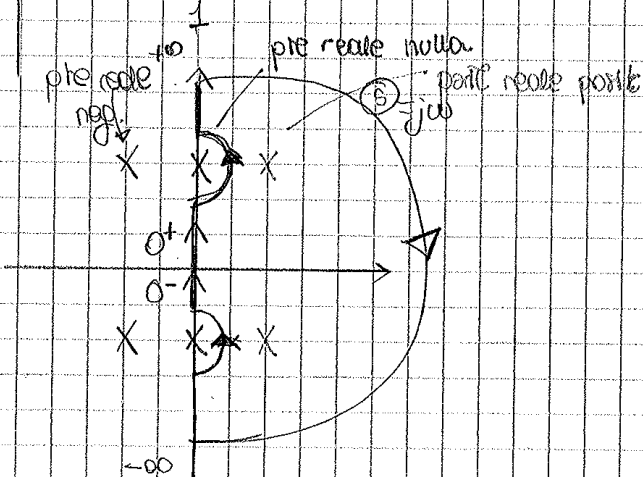 1
+∞
pte reale nulla
pte reale
neg.
parte reale posit
s
=jω
0+
0-
-∞